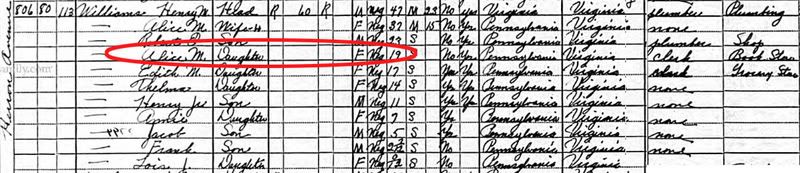 806 80 113 Williams Henry M. Head R 60 R M Neg 47 M 23 No Yes Virginia Virginia Virginia plumber Plumbing
— Alice M. Wife H F Neg 37 M 15 No Yes Pennsylvania Virginia Pennsylvania none
— Son M Neg S No Yes Pennsylvania Virginia plumber Shop
— Alice M. Daughter F Neg 19 No Yes Pennsylvania Virginia clerk Book Store
— Edith M. Daughter F Neg 17 S Yes Yes Pennsylvania Virginia clerk Grocery Store
— Thelma Daughter F Neg 14 S Yes Yes Pennsylvania Virginia none
— Henry Jr Son M Neg 11 S Yes Yes Pennsylvania Virginia none
— Daughter F Neg 7 S Yes Pennsylvania Virginia none
— Jacob Son M Neg 5 S Yes Pennsylvania Virginia none
— Frank Son M Neg S No Pennsylvania Virginia none
— Lois J. Daughter F Neg S No Pennsylvania Virginia none
Avenue